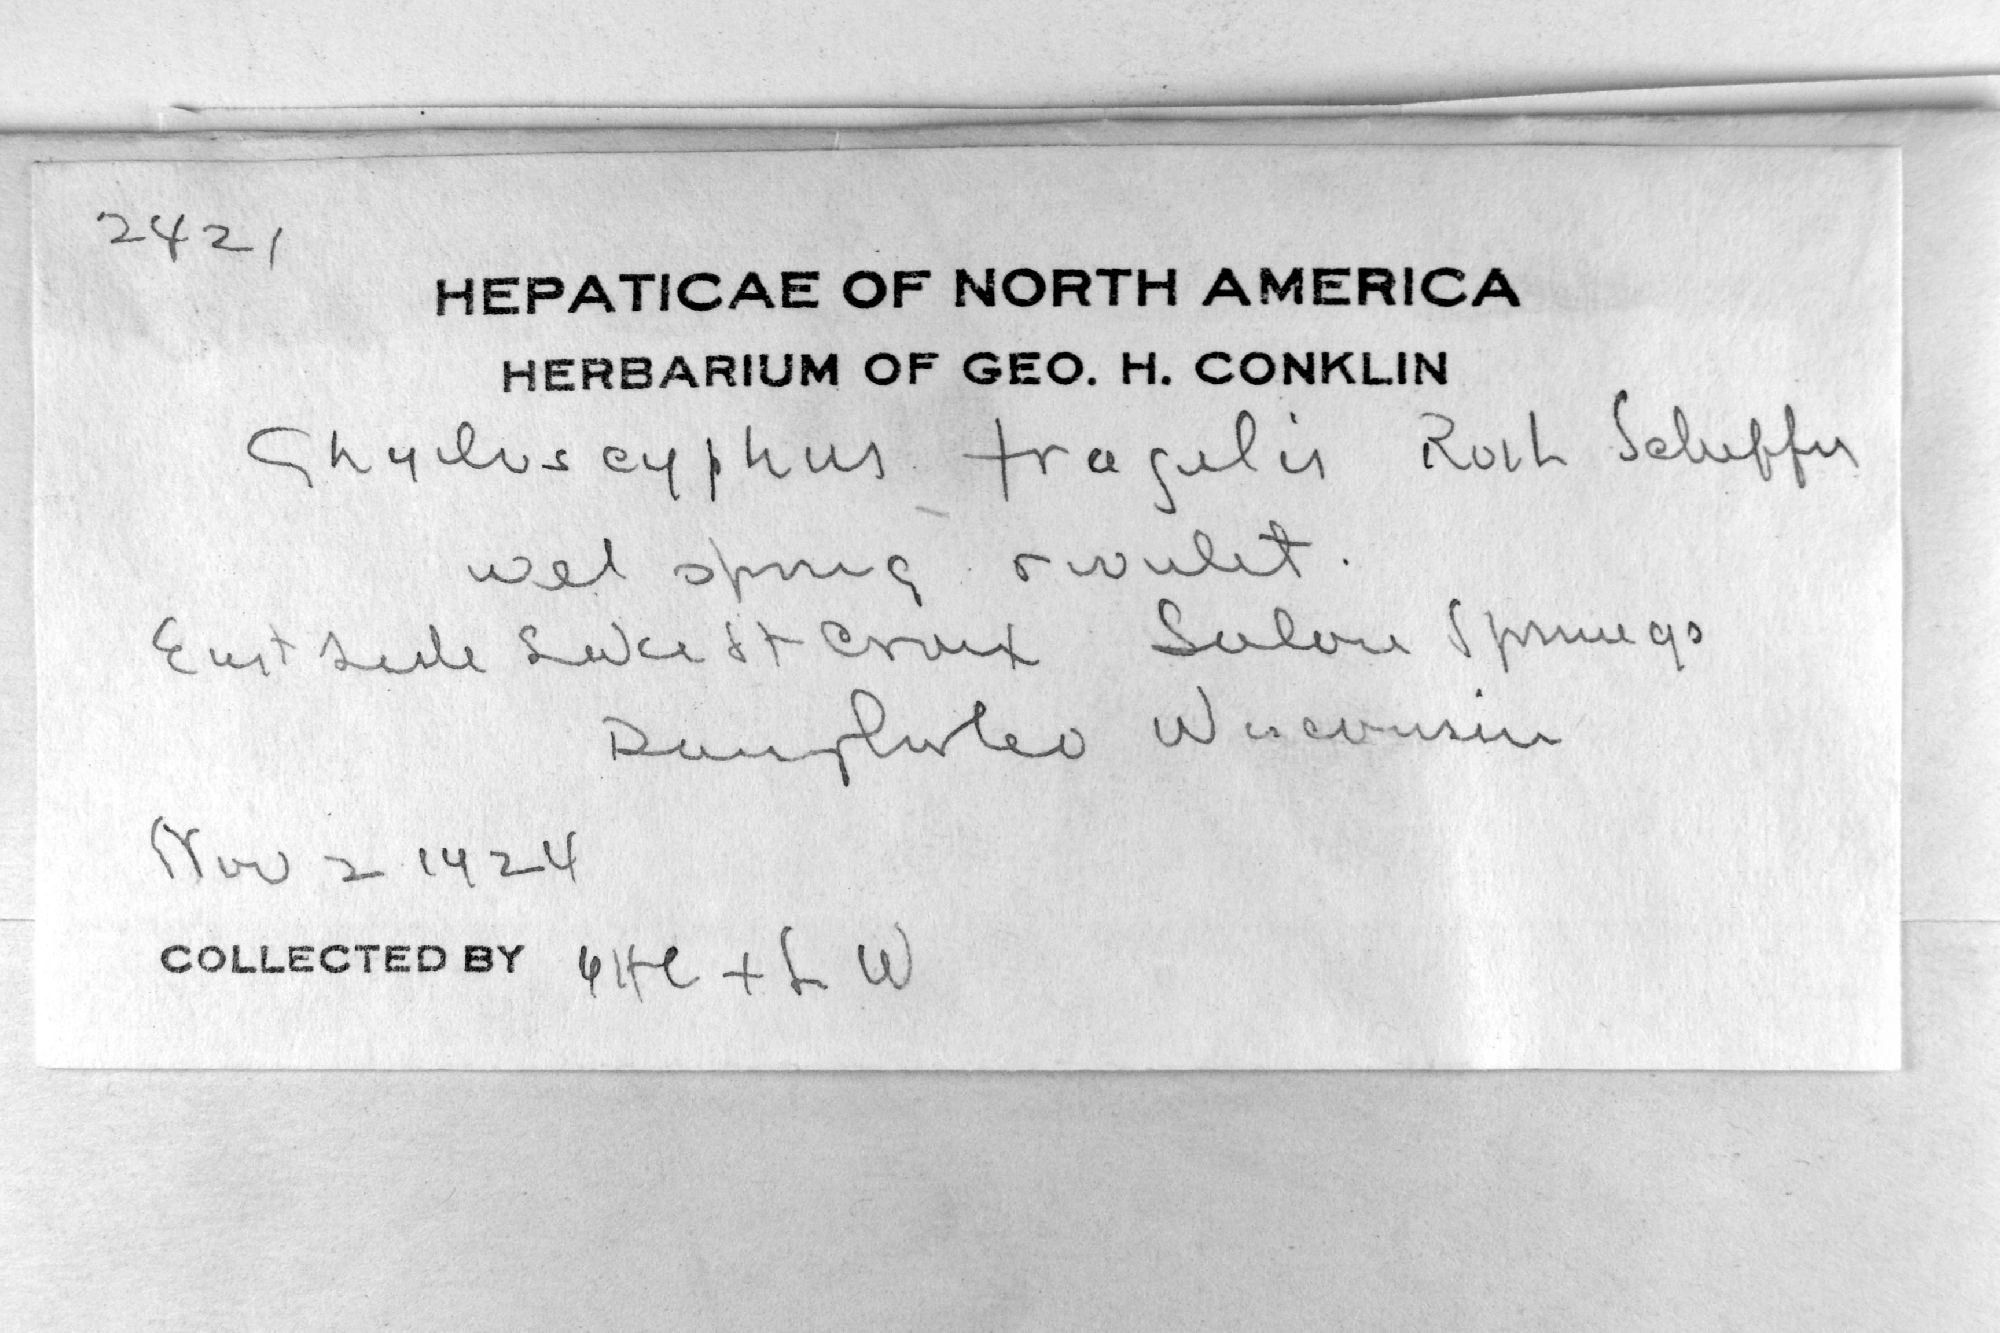 2421
HEPATICAE OF NORTH AMERICA
HERBARIUM OF GEO. H. CONKLIN
Chyloscyphus fragilis Roth Schiffn
wet spring rivulet.
East side Lake St Croix Solon Springs
Douglas Co Wisconsin
Nov 2 1924
COLLECTED BY GHC + L W